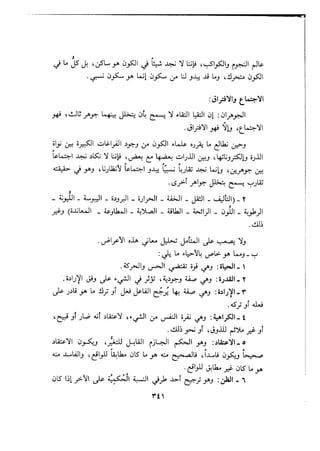 عالم النجوم والكواكب، فإننا لا نجد شيئاً في الكون هو ساكن، بل كل ما في
الكون متحرك، وما قد يبدو لنا من سكون إنما هو سكون نسبي.
الاجتماع والافتراق:
الجوهران: إن التقيا التقاء لا يسمح بأن يتخلل بينهما جوهر ثالث، فهو
الاجتماع، وإلا فهو الافتراق.
وحين نطالع ما يقرره علماء الكون من وجود الفراغات الكبيرة بين نواة
الذرة وإلكتروناتها، وبين الذرات بعضها مع بعض، فإننا لا نكاد نجد اجتماعاً
بين جوهرين، وإنما نجد تقارباً نسبياً يبدو اجتماعاً لأنظارنا، وهو في حقيقته
تقارب يسمح بتخلل جواهر أخرى.
٢ - (التأليف - الثقل - الخفة - الحرارة - البرودة - اليبوسة - الليونة -
الرطوبة - اللون - الرائحة - الطاقة - الصلابة - المطاوعة - المعاندة) وغير
ذلك.
ولا يصعب على المتأمل تحليل معاني هذه الأعراض.
ب - وما هو خاص بالأحياء ما يلي:
١ - الحياة: وهي قوة تقتضي الحس والحركة.
٢ - القدرة: وهي صفة وجودية، تؤثر في الشيء على وفق الإرادة.
٣ - الإرادة: وهي صفة بها يُرجح الفاعل فعل أو ترك ما هو قادر على
فعله أو تركه.
٤ - الكراهية: وهي نفرة النفس من الشيء، لاعتقاد أنه ضار أو قبيح،
أو غير ملائم للذوق، أو نحو ذلك.
٥ - الاعتقاد: وهو الحكم الجازم القابل للتغير، ويكون الاعتقاد
صحيحاً ويكون فاسداً، فالصحيح منه ما هو كان مطابقاً للواقع، والفاسد منه
ما هو كان غير مطابق للواقع.
٦ - الظن: وهو ترجيح أحد طرفي النسبة الحُكمية على الآخر إذا كان
٣٤١